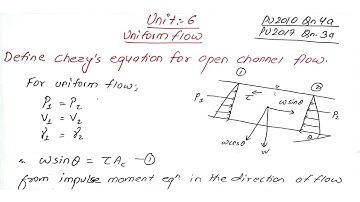 Unit:- 6
Uniform flow
PU2010 Qn.4a
PU2017 Qn.3a
Define chezy's equation for open channel flow.
For uniform flow;
P₁ = P₂
V₁ = V₂
Y₁ = Y₂
∴ wsinθ = τAc —①
from impulse moment eqⁿ in the direction of flow
① ②
P₁ τ wsinθ P₂
wcosθ w θ